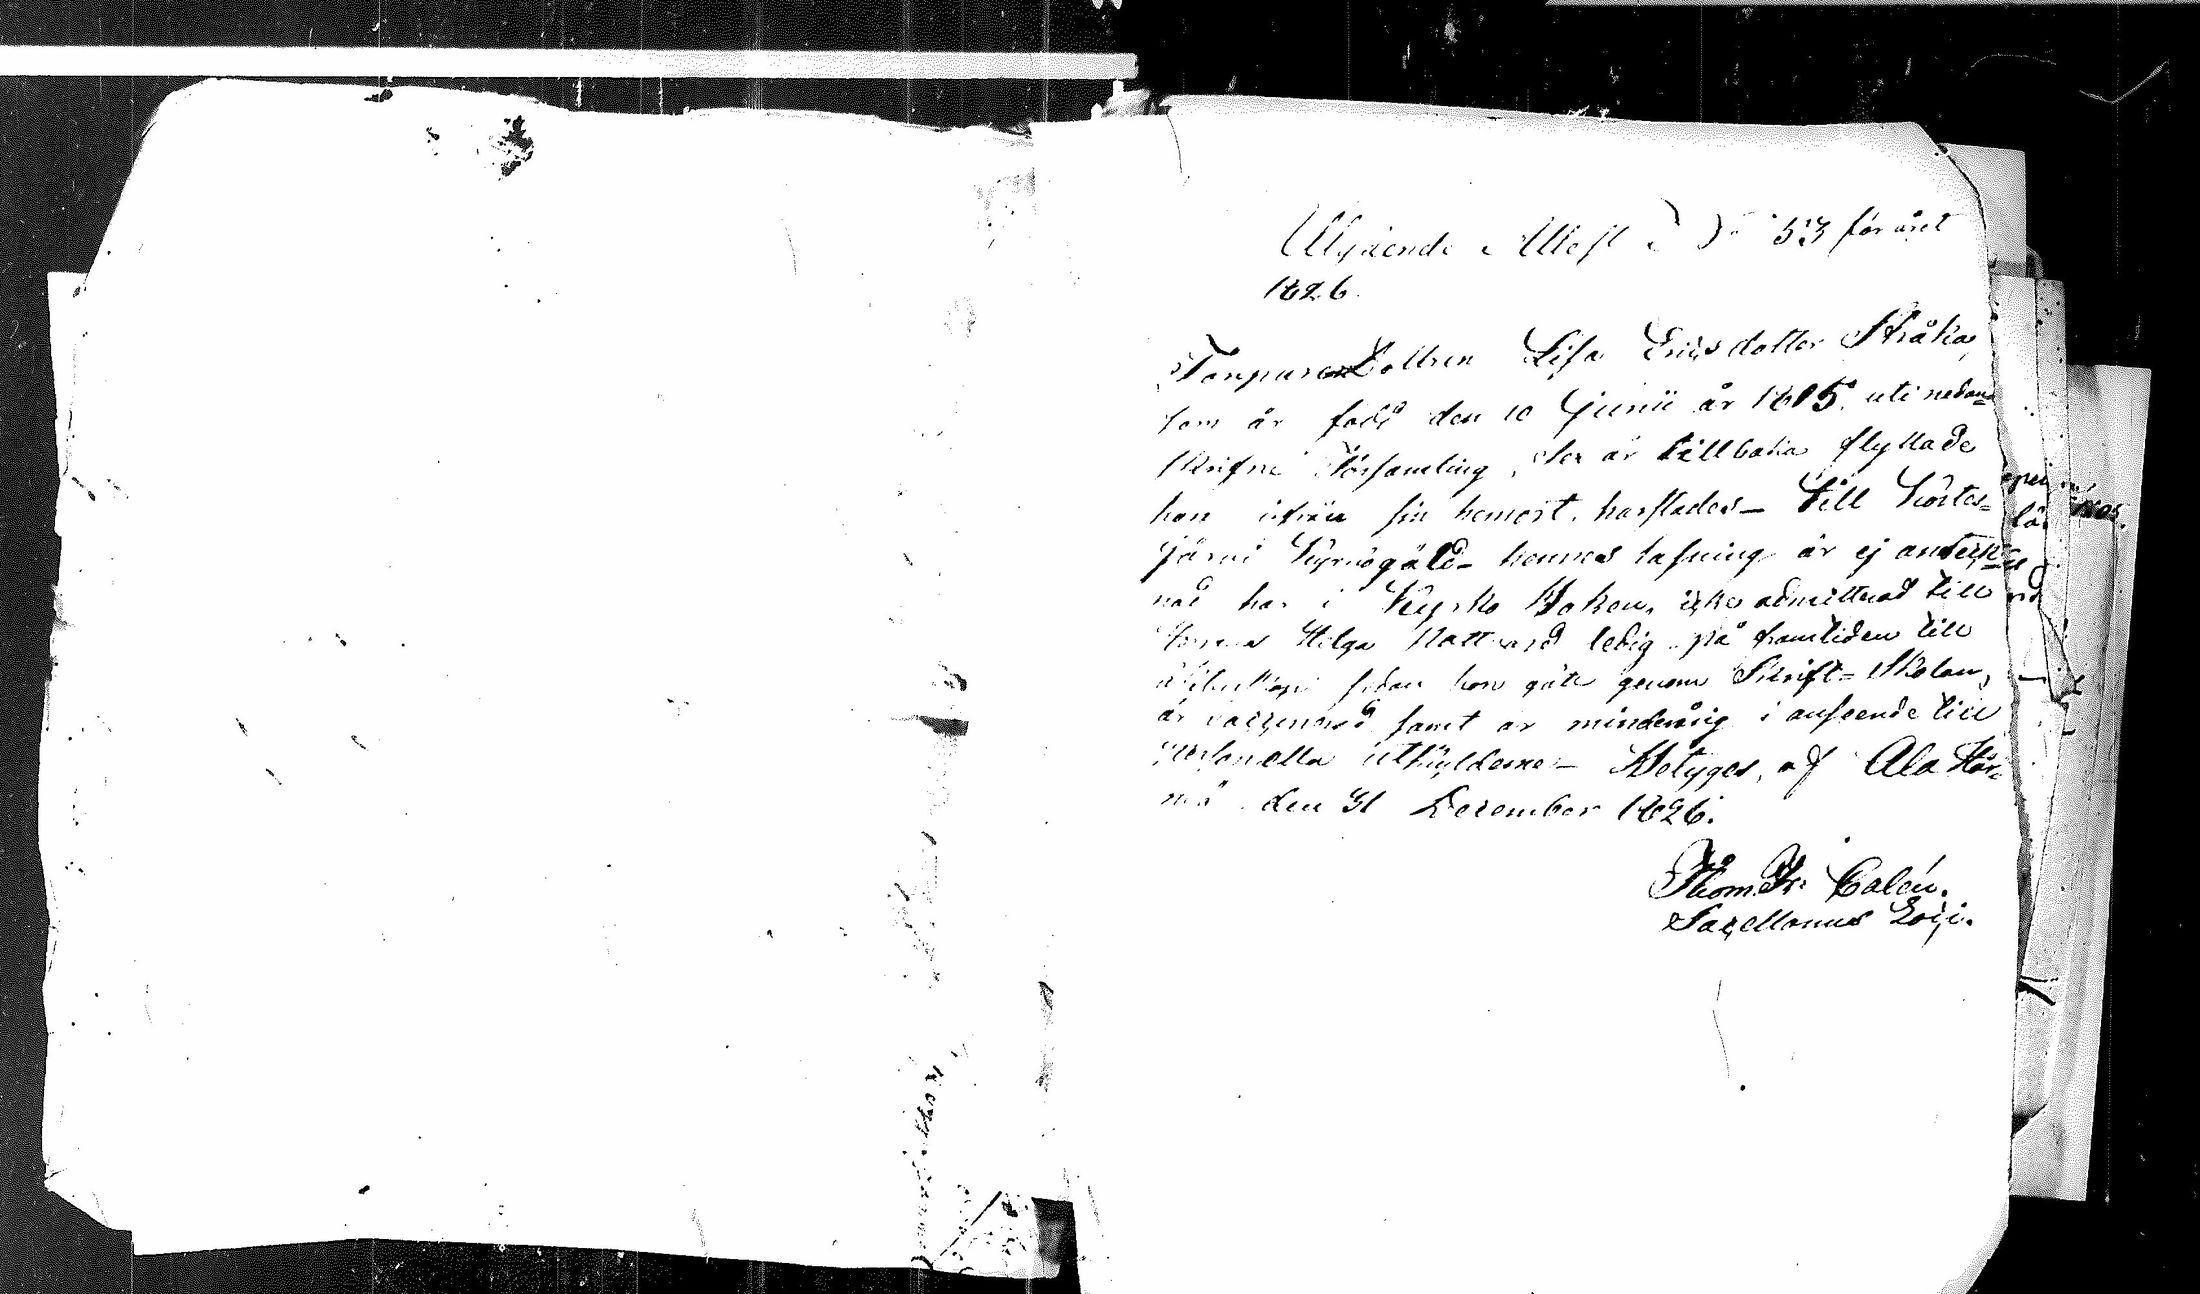 Utgående Attest N: 53 för året
1826.
Torpare Dottren Lisa Ericsdotter Stråka,
som är född den 10 Junii år 1805. uti nedan=
skrifne Församling, der är tillbaka flyttade
hon ifrån sin hemort, harstädes – till Kortes=
järvi hennes läsning är ej anteck=
nad har i Kyrko Boken, icke admitterad till
Herrans Helga Nattvard ledig på framtiden till
sedan hon gått genom Skrift=Skolan,
är vaccinerad samt är minderårig i anseende till
personella utskylderne – Betyges, af Ala Här=
mä den 31 December 1826.
Thom. Fr: Calén.
Sacellanus Loci.